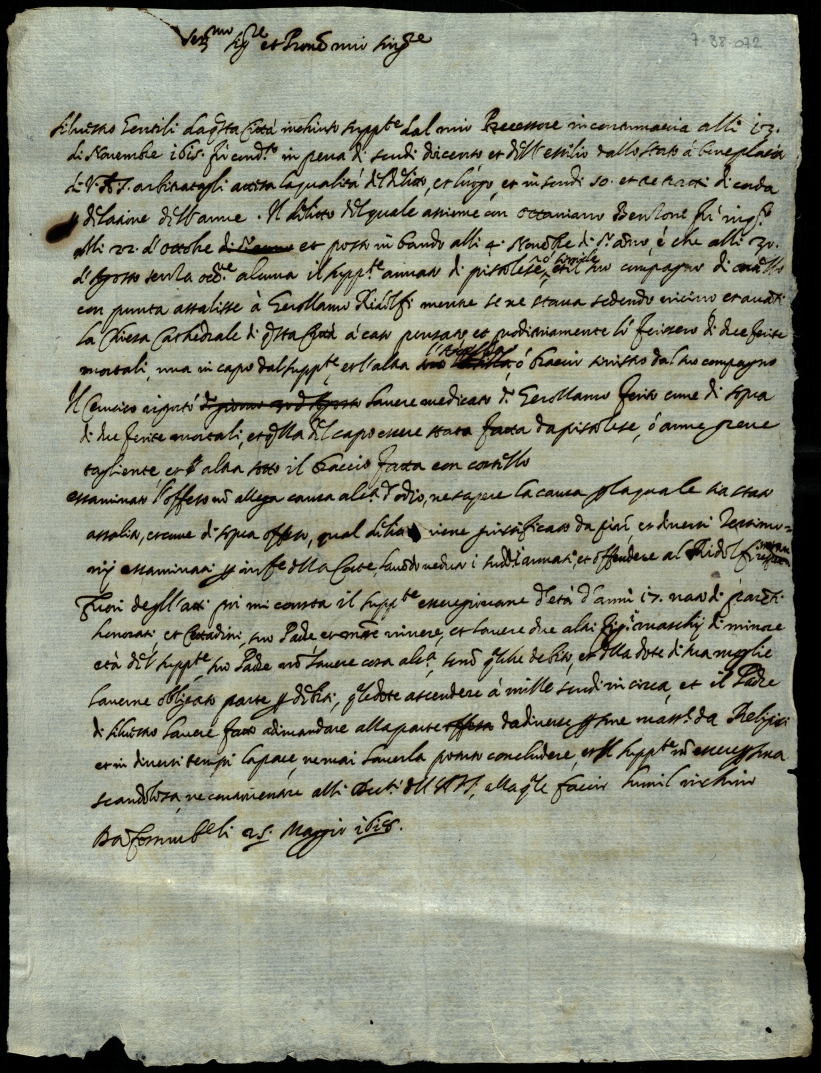 Ser.mo Sig.re et Prone mio sing.re
7-38-072
Silvestro Gentili da q.sta Città inchinto supp.te dal mio Precessore in contumacia alli 13.
di Novembre 1615. fù cond.to in pena di scudi ducento et dell'essilio dallo stato à beneplacito
di V. A. S. arbitratagli attesa la qualità del delitto, et luogo, et in scudi 50. et tre tratti di corda
p delatione dell'arme. Il delitto del quale assieme con Ottaviano Bentone fù inq.to
alli 22. d'ottobre et posto in bando alli 4. Novembre di d.o anno, è che alli 30.
d'Agosto senza occ.ne alcuna il supp.te armato di pistolese, et il suo compagno di cortello
con punta assalisse à Gerollamo Ridolfi mentre se ne stava sedendo vicino et avanti
la Chiesa Cathedrale di q.sta Città à caso pensato et proditoriamente lo ferissero di due ferite
mortali, una in capo dal supp.te et l'altra ò braccio sinistro dal suo compagno
Il Cerusico rapportò havere medicato d.o Gerollamo ferito come di sopra
di due ferite mortali, et q.lla del capo essere stata fatta da pistolese, ò arme greve
tagliente, et l'altra sotto il braccio fatta con cortello
essaminato l'offeso nõ allega causa alc.a d'odio, ne sapere la causa p la quale sia stato
assalito, et come di sopra offeso, qual delitto viene giustificato da più, et diversi Testimo=
nij essaminati p inf.e della Corte, havendo veduti i sudd.i armati, et offendere al Ridolfi
Fuori degll'atti poi mi consta il supp.te essere giovane d'età d'anni 17. nato di parenti
honorati, et Cittadini, suo Padre et matre vivere, et havere due altri fig.li maschij di minore
età del supp.te, suo Padre nõ havere cosa alc.a, senõ qualche debito, et della dote di sua moglie
haverne obligato parte p debiti, q.le dote ascendere à mille scudi in circa, et il Padre
di Silvestro havere fatto adimandare alla parte da diverse p.sone mass.e da Religiosi
et in diversi tempi la pace, ne mai haverla potuto concludere, et il supp.te nõ essere p.sona
scandolosa, ne contravenire alli Decreti dell'A.V.S., alla q.le faccio humil inchino
Da 25. Maggio 1618.